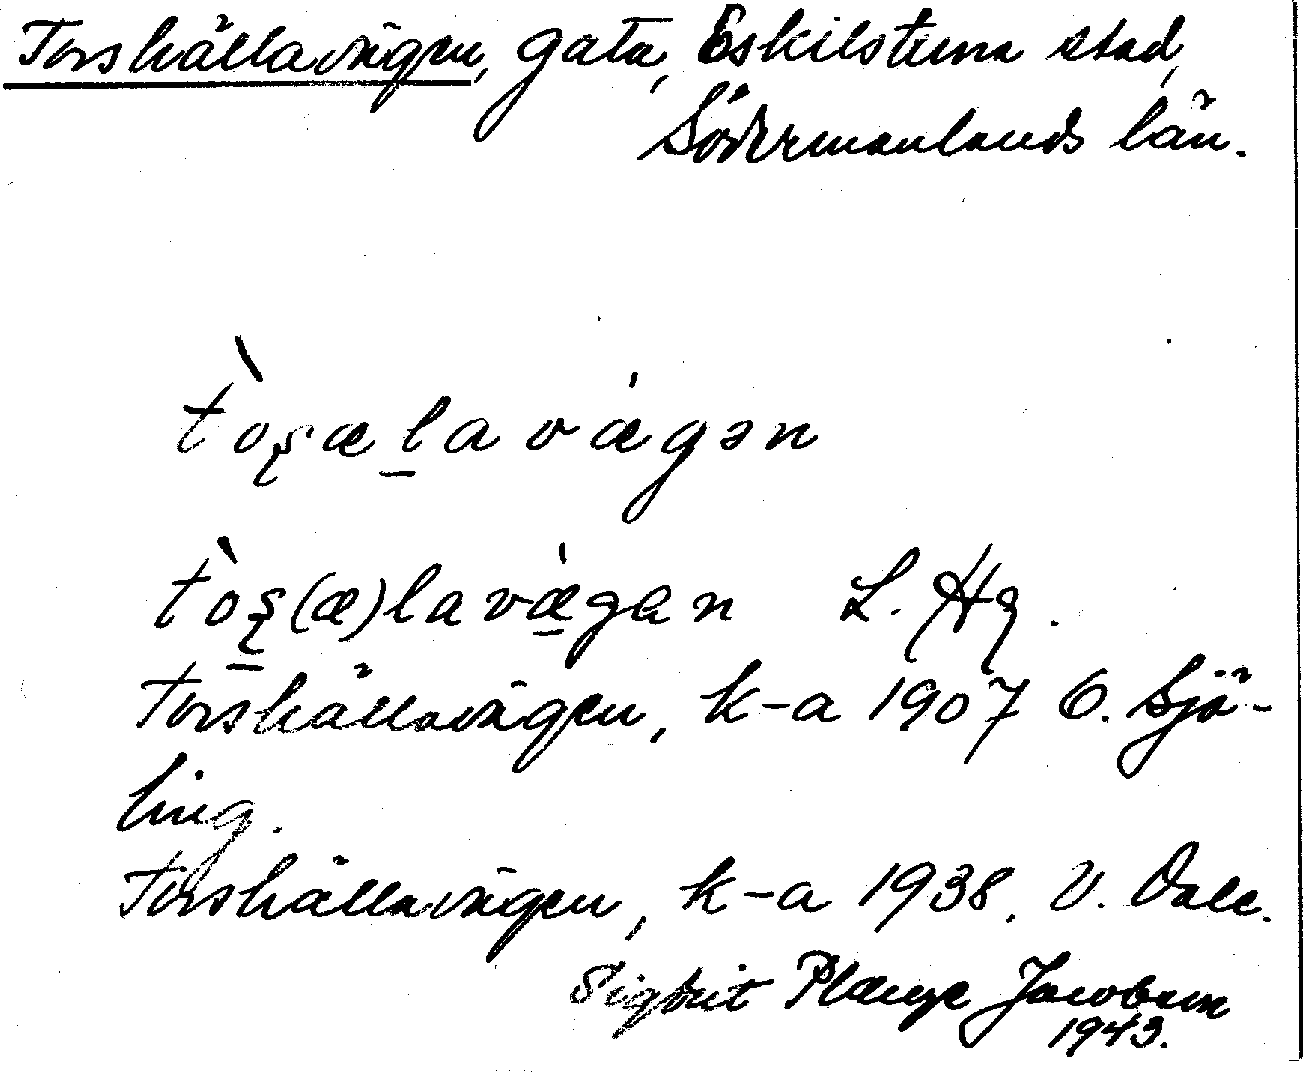 Torshällavägen, gata, Eskilstuna stad,
Södermanlands län.
tòʂæḷavǽgən
tòʂ(æ)lavǽgən L. Hg.
Torshällavägen, k-a 1907 O. Sjö-
ling.
Torshällavägen, k-a 1938. V. Dale.
Sigbrit Plænge Jacobson
1943.